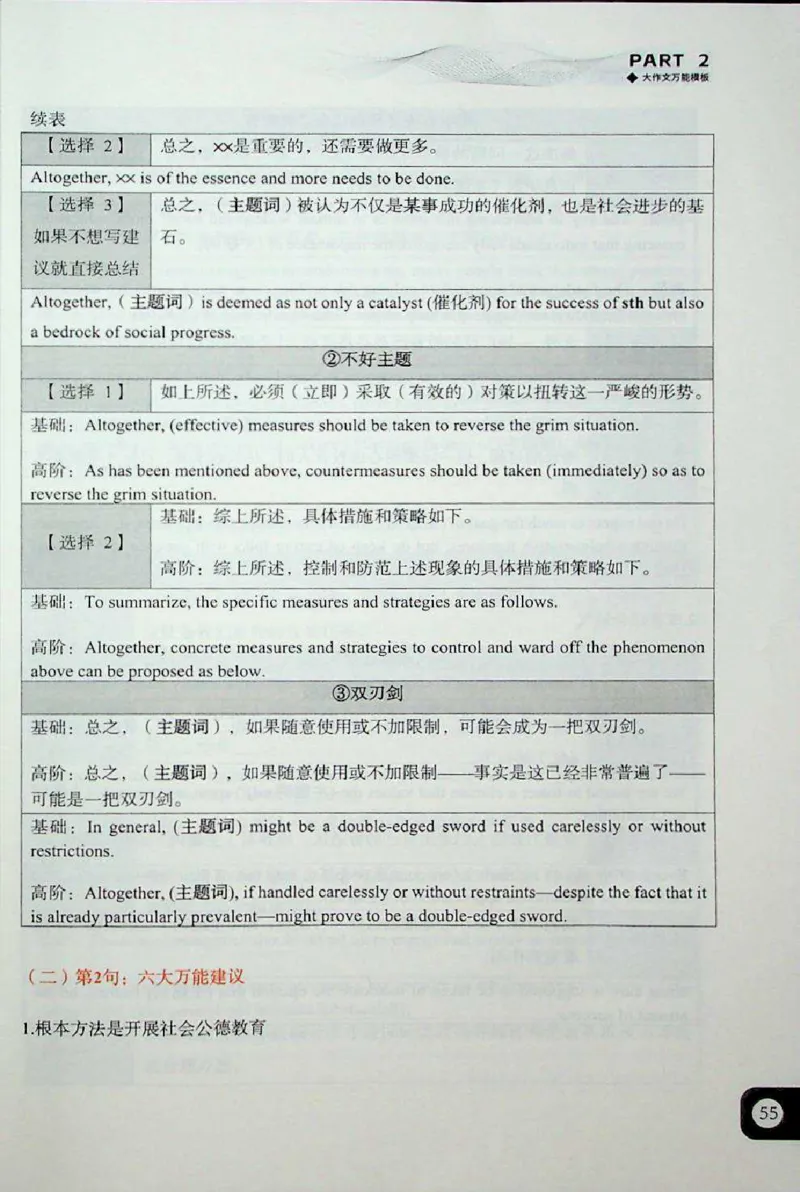 PART 2
◆ 大作文万能模板
续表
【选择 2】 总之，××是重要的，还需要做更多。
Altogether, ×× is of the essence and more needs to be done.
【选择 3】 总之，（主题词）被认为不仅是某事成功的催化剂，也是社会进步的基
如果不想写建 石。
议就直接总结
Altogether,（主题词）is deemed as not only a catalyst (催化剂) for the success of sth but also
a bedrock of social progress.
②不好主题
【选择 1】 如上所述，必须（立即）采取（有效的）对策以扭转这一严峻的形势。
基础：Altogether, (effective) measures should be taken to reverse the grim situation.
高阶：As has been mentioned above, countermeasures should be taken (immediately) so as to
reverse the grim situation.
基础：综上所述，具体措施和策略如下。
【选择 2】
高阶：综上所述，控制和防范上述现象的具体措施和策略如下。
基础：To summarize, the specific measures and strategies are as follows.
高阶：Altogether, concrete measures and strategies to control and ward off the phenomenon
above can be proposed as below.
③双刃剑
基础：总之，（主题词），如果随意使用或不加限制，可能会成为一把双刃剑。
高阶：总之，（主题词），如果随意使用或不加限制——事实是这已经非常普遍了——
可能是一把双刃剑。
基础：In general, (主题词) might be a double-edged sword if used carelessly or without
restrictions.
高阶：Altogether, (主题词), if handled carelessly or without restraints—despite the fact that it
is already particularly prevalent—might prove to be a double-edged sword.
（二）第2句：六大万能建议
1.根本方法是开展社会公德教育
55